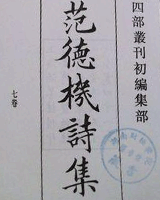 四部叢刊初編集部
范德機詩集
七卷